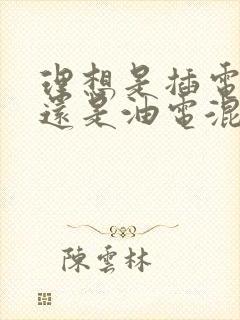 理想是插電
還是油電混
陳雲林